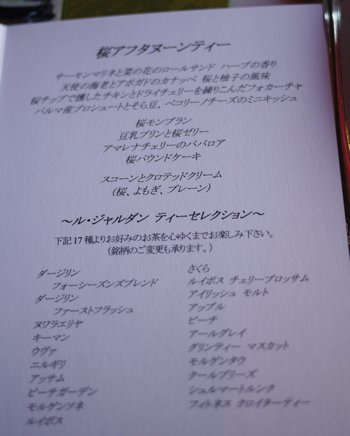 桜アフタヌーンティー
サーモンマリネと菜の花のロールサンド ハーブの香り
天使の海老とアボガドのカナッペ 桜と柚子の風味
桜チップで燻したチキンとドライチェリーを練りこんだフォカーチャ
パルマ産プロシュートとそら豆、ペコリーノチーズのミニキッシュ
桜モンブラン
豆乳プリンと桜ゼリー
アマレナチェリーのババロア
桜パウンドケーキ
スコーンとクロテッドクリーム
(桜、よもぎ、プレーン)
～ル・ジャルダン ティーセレクション～
下記17種よりお好みのお茶を心ゆくまでお楽しみ下さい。
(銘柄のご変更も承ります。)
ダージリン
フォーシーズンズブレンド
ダージリン
ファーストフラッシュ
ヌワラエリヤ
キーマン
ウヴァ
ニルギリ
アッサム
ピーチガーデン
モルゲンソネ
ルイボス
さくら
ルイボス チェリーブロッサム
アイリッシュ モルト
アップル
ピーチ
アールグレイ
グリンティー マスカット
モルゲンタウ
クールブリーズ
シュルマートルンク
フィトネス クロイターティー